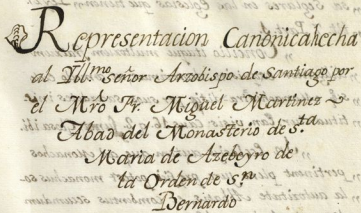 Representacion Canonica hecha
al Yll.mo señor Arzobispo de Santiago por
el Mrō Fr. Miguel Martinez
Abad del Monasterio de s.ta
Maria de Azebeyro de
la Orden de s.n
Bernardo